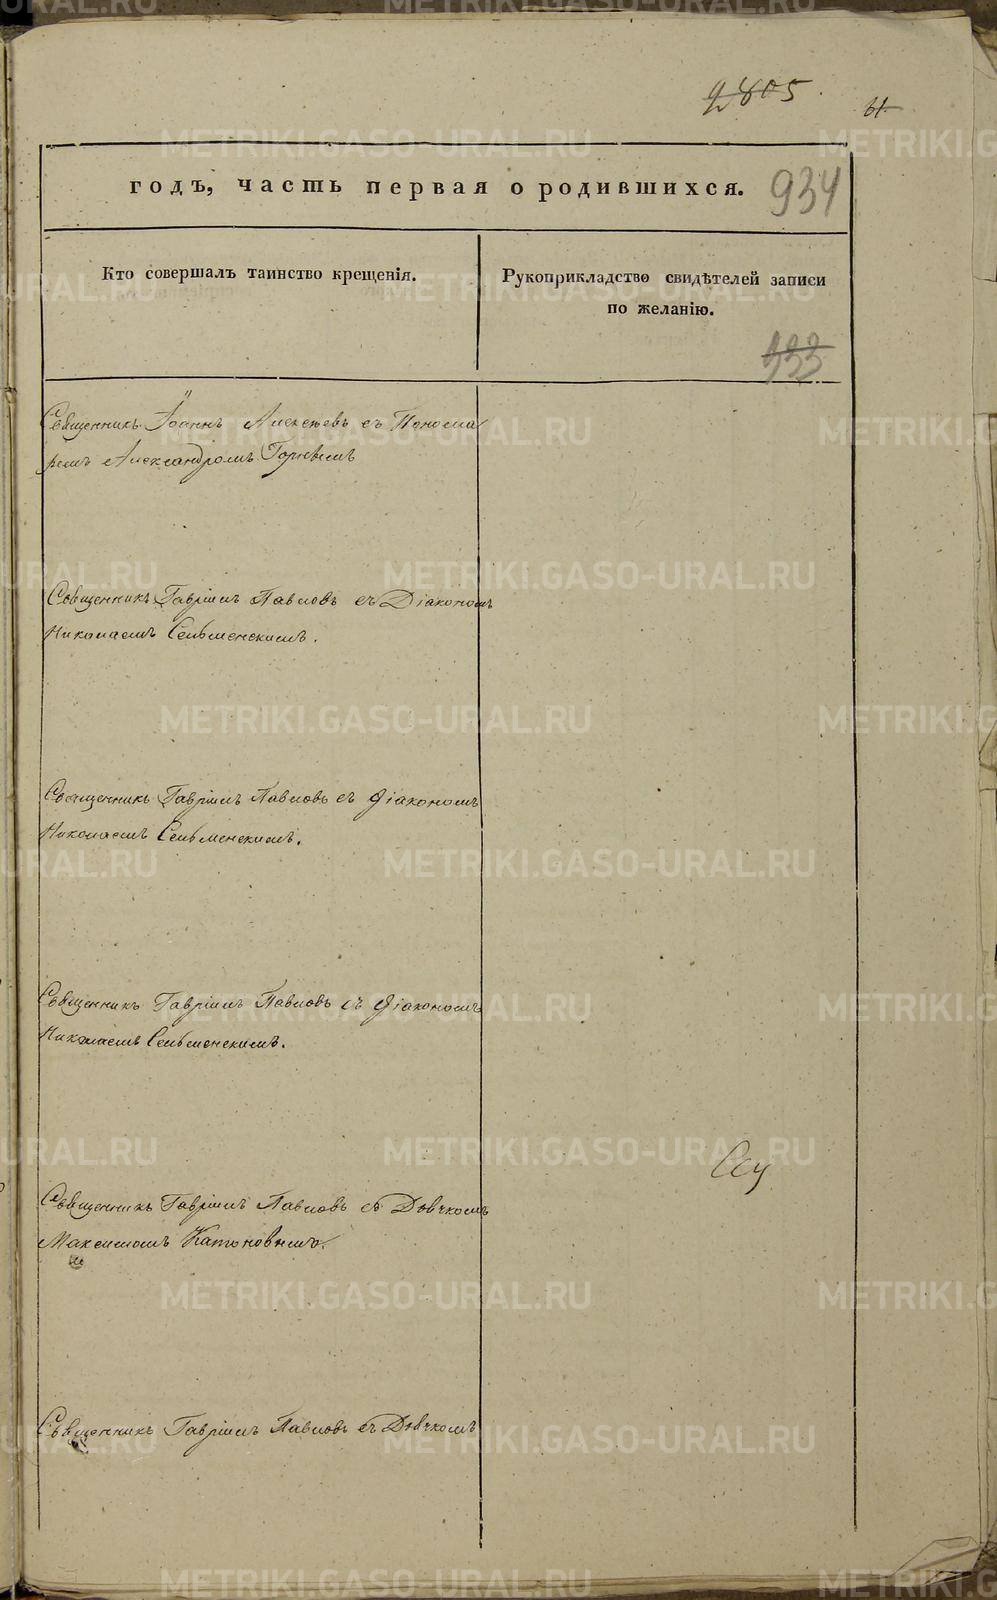 2805.
61
годъ, часть первая о родившихся.
934
Кто совершалъ таинство крещенія.
Рукоприкладство свидѣтелей записи
по желанію.
933
Священникъ Іоаннъ Алексѣевъ съ Понома
ремъ Александромъ
Священникъ Гавріилъ Павловъ съ Діакономъ
Николаемъ Сельменскимъ.
Священникъ Гавріилъ Павловъ съ Діакономъ
Николаемъ Сельменскимъ.
Священникъ Гавріилъ Павловъ съ Діакономъ
Николаемъ Сельменскимъ.
Священникъ Гавріилъ Павловъ съ Дьячкомъ
Максимомъ Катоновымъ.
Священникъ Гавріилъ Павловъ съ Дьячкомъ
METRIKI.GASO-URAL.RU